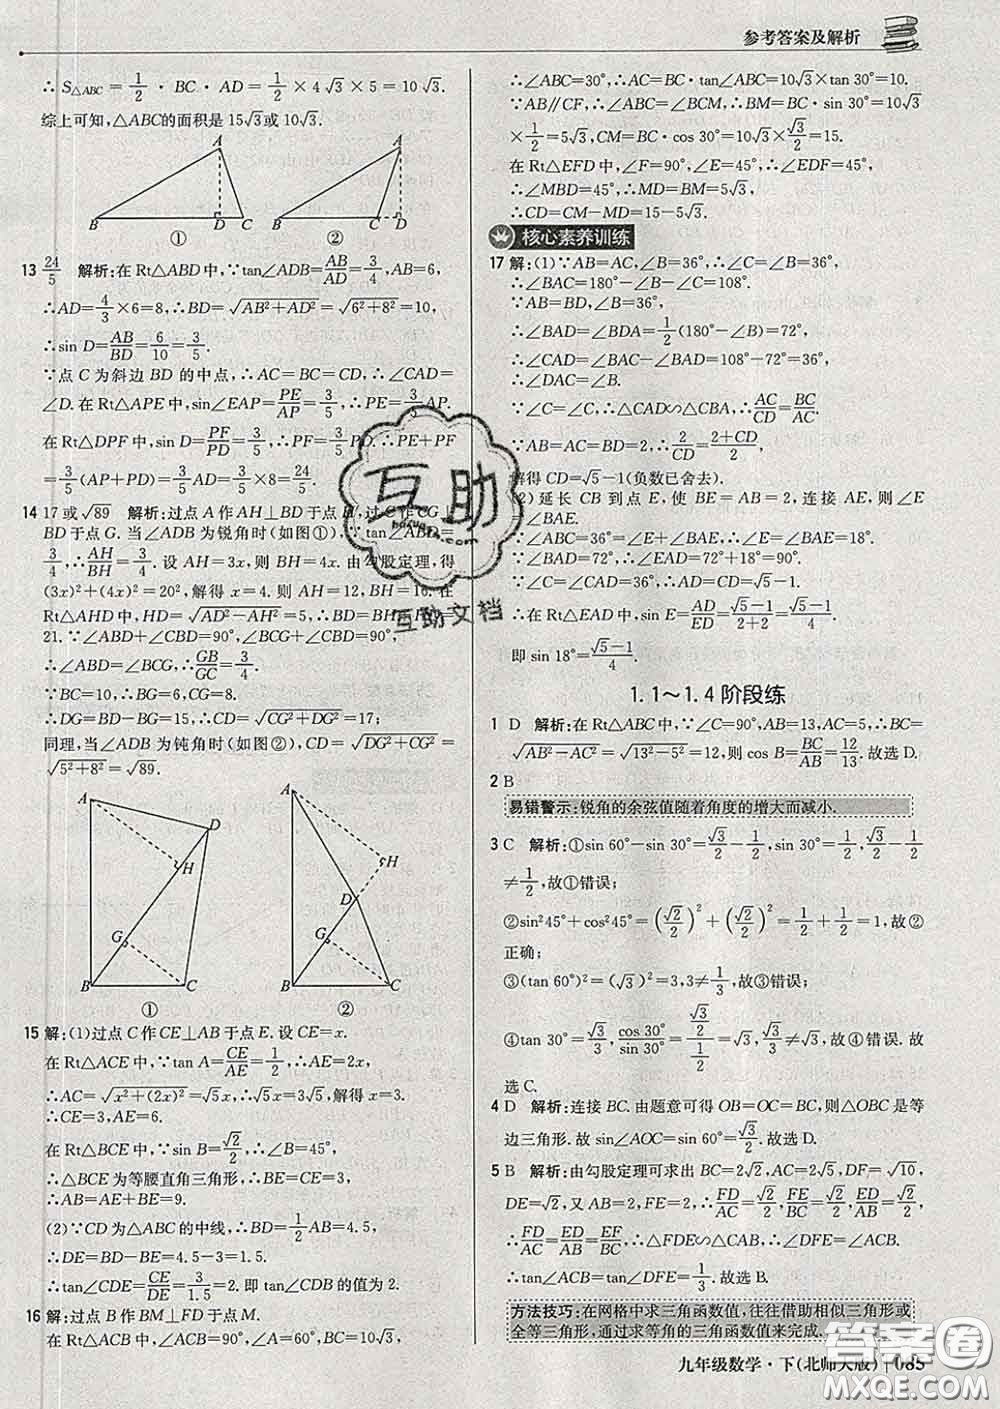 参考答案及解析
∴ S△ABC = 1/2 · BC · AD = 1/2 × 4√3 × 5 = 10√3.
综上可知，△ABC的面积是15√3或10√3.
A B D C
①
A B C D
②
13 24/5 解析:在Rt△ABD中，∵tan∠ADB=AB/AD=3/4，AB=6，
∴AD=4/3×6=8，∴BD=√(AB²+AD²)=√(6²+8²)=10，
∴sin D=AB/BD=6/10=3/5.
∵点C为斜边BD的中点，∴AC=BC=CD，∴∠CAD=
∠D. 在Rt△APE中，sin∠EAP=PE/AP=3/5，∴PE=3/5AP.
在Rt△DPF中，sin D=PF/PD=3/5，∴PF=3/5PD. ∴PE+PF
=3/5(AP+PD)=3/5AD=3/5×8=24/5.
14 17或√89 解析:过点A作AH⊥BD于点H，过C作CG⊥
BD于点G. 当∠ADB为锐角时(如图①)，∵tan∠ABD=
3/4，∴AH/BH=3/4. 设AH=3x，则BH=4x. 由勾股定理，得
(3x)²+(4x)²=20²，解得x=4. ∴AH=12，BH=16. 在
Rt△AHD中，HD=√(AD²-AH²)=5，∴BD=BH+HD=
21. ∵∠ABD+∠CBD=90°，∠BCG+∠CBD=90°，
∴∠ABD=∠BCG，∴GB/GC=3/4.
∵BC=10，∴BG=6，CG=8.
∴DG=BD-BG=15，∴CD=√(CG²+DG²)=17；
同理，当∠ADB为钝角时(如图②)，CD=√(DG²+CG²)=
√(5²+8²)=√89.
A D H G B C
①
A H D G B C
②
15 解:(1)过点C作CE⊥AB于点E. 设CE=x.
在Rt△ACE中，∵tan A=CE/AE=1/2，∴AE=2x，
∴AC=√(x²+(2x)²)=√5x，∴√5x=3√5，解得x=3.
∴CE=3，AE=6.
在Rt△BCE中，∵sin B=√2/2，∴∠B=45°，
∴△BCE为等腰直角三角形，∴BE=CE=3，
∴AB=AE+BE=9.
(2)∵CD为△ABC的中线，∴BD=1/2AB=4.5，
∴DE=BD-BE=4.5-3=1.5，
∴tan∠CDE=CE/DE=3/1.5=2. 即tan∠CDB的值为2.
16 解:过点B作BM⊥FD于点M.
在Rt△ACB中，∠ACB=90°，∠A=60°，BC=10√3，
∴∠ABC=30°，∴AC=BC·tan∠ABC=10√3×tan 30°=10.
∵AB∥CF，∴∠ABC=∠BCM，∴BM=BC·sin 30°=10√3
×1/2=5√3，CM=BC·cos 30°=10√3×√3/2=15.
在Rt△EFD中，∠F=90°，∠E=45°，∴∠EDF=45°，
∴∠MBD=45°，∴MD=BM=5√3，
∴CD=CM-MD=15-5√3.
核心素养训练
17 解:(1)∵AB=AC，∠B=36°，∴∠C=∠B=36°，
∴∠BAC=180°-∠B-∠C=108°.
∵AB=BD，∠B=36°，
∴∠BAD=∠BDA=1/2(180°-∠B)=72°，
∴∠CAD=∠BAC-∠BAD=108°-72°=36°，
∴∠DAC=∠B.
∵∠C=∠C，∴△CAD∽△CBA，∴AC/CD=BC/AC.
∵AB=AC=BD=2，∴2/CD=(2+CD)/2，
解得CD=√5-1(负数已舍去).
(2)延长CB到点E，使BE=AB=2，连接AE，则∠E
=∠BAE.
∵∠ABC=36°，∠ABC=∠E+∠BAE，∴∠E=∠BAE=18°.
∵∠BAD=72°，∴∠EAD=72°+18°=90°.
∵∠BAD=72°，∠DAC=36°，∴AD=CD=√5-1，
∴在Rt△EAD中，sin E=AD/ED=(√5-1)/(2+2)=(√5-1)/4.
即sin 18°=(√5-1)/4.
1.1～1.4阶段练
1 D 解析:在Rt△ABC中，∵∠C=90°，AB=13，AC=5，∴BC=
√(AB²-AC²)=√(13²-5²)=12，则cos B=BC/AB=12/13. 故选D.
2 B
易错警示:锐角的余弦值随着角度的增大而减小.
3 C 解析:①sin 60°-sin 30°=√3/2-1/2=(√3-1)/2，√3/2-1/2
≠1/2，故①错误；
②sin²45°+cos²45°=(√2/2)²+(√2/2)²=1/2+1/2=1，故②
正确；
③(tan 60°)²=(√3)²=3，3≠1/3，故③错误；
④tan 30°=√3/3，cos 30°/sin 30°=(√3/2)/(1/2)=√3，√3≠√3/3，故④错误. 故
选C.
4 D 解析:连接BC. 由题意可得OB=OC=BC，则△OBC是等
边三角形. 故sin∠AOC=sin 60°=√3/2. 故选D.
5 B 解析:由勾股定理可求出BC=2√2，AC=2√5，DF=√10，
DE=√2，又AB=2，FE=2，∴FD/AC=√2/2，DE/AB=√2/2，EF/BC=√2/2，
∴FD/AC=DE/AB=EF/BC，∴△FDE∽△CAB，∴∠DFE=∠ACB.
∴tan∠ACB=tan∠DFE=1/3. 故选B.
方法技巧:在网格中求三角函数值，往往借助相似三角形或
全等三角形，通过求等角的三角函数值来完成.
九年级数学·下(北师大版) 085
互助
互助文档
答案圈
MXQE.COM